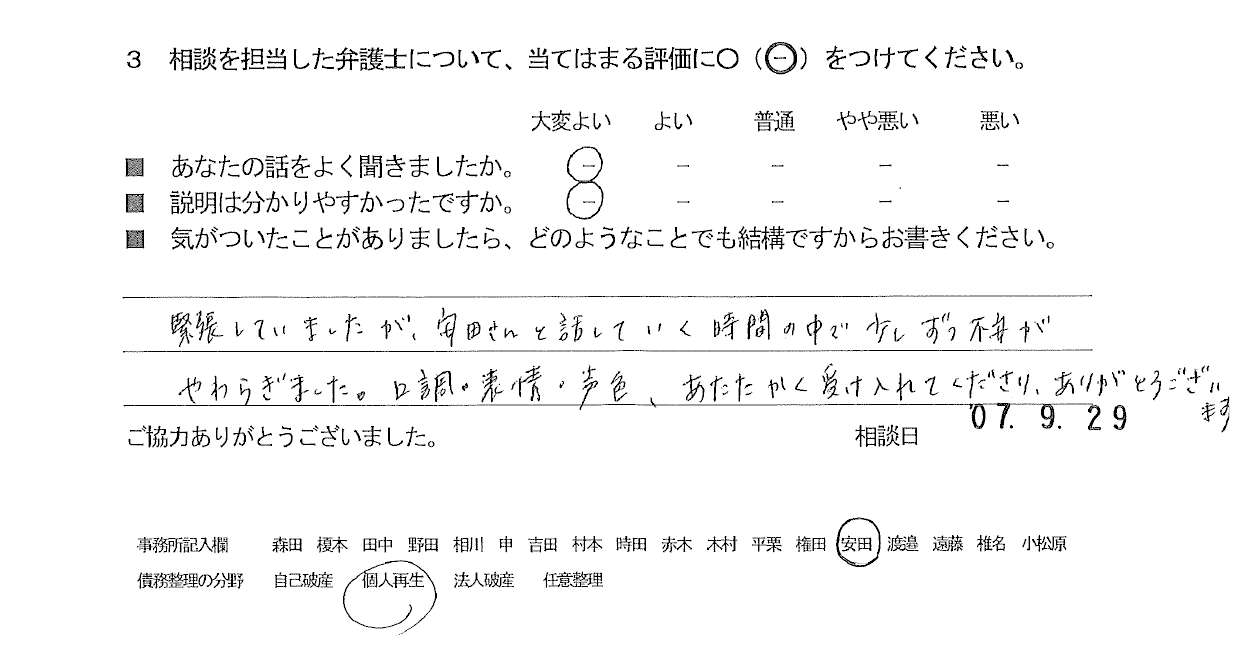 3 相談を担当した弁護士について、当てはまる評価に○（㊀）をつけてください。
大変よい よい 普通 やや悪い 悪い
■ あなたの話をよく聞きましたか。 － － － － －
■ 説明は分かりやすかったですか。 － － － － －
■ 気がついたことがありましたら、どのようなことでも結構ですからお書きください。
緊張していましたが、安田さんと話していく時間の中で少しずつ不安が
やわらぎました。口調・表情・声色、あたたかく受け入れてくださり、ありがとうござい
ます
ご協力ありがとうございました。 相談日 '07. 9. 29
事務所記入欄 森田 榎木 田中 野田 相川 申 吉田 村本 時田 赤木 木村 平栗 権田 安田 渡邉 遠藤 椎名 小松原
債務整理の分野 自己破産 個人再生 法人破産 任意整理